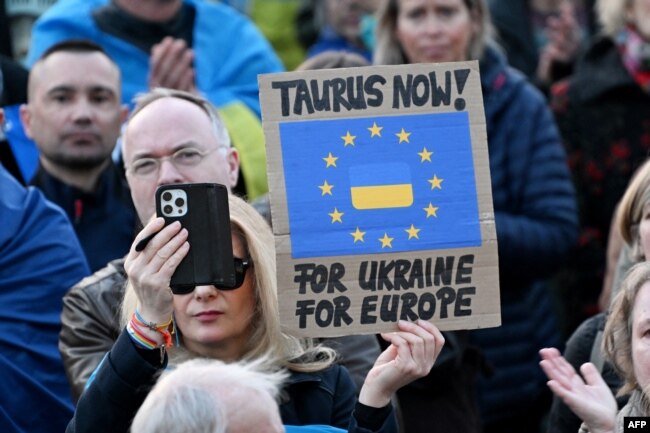 TAURUS NOW!
FOR UKRAINE
FOR EUROPE
AFP